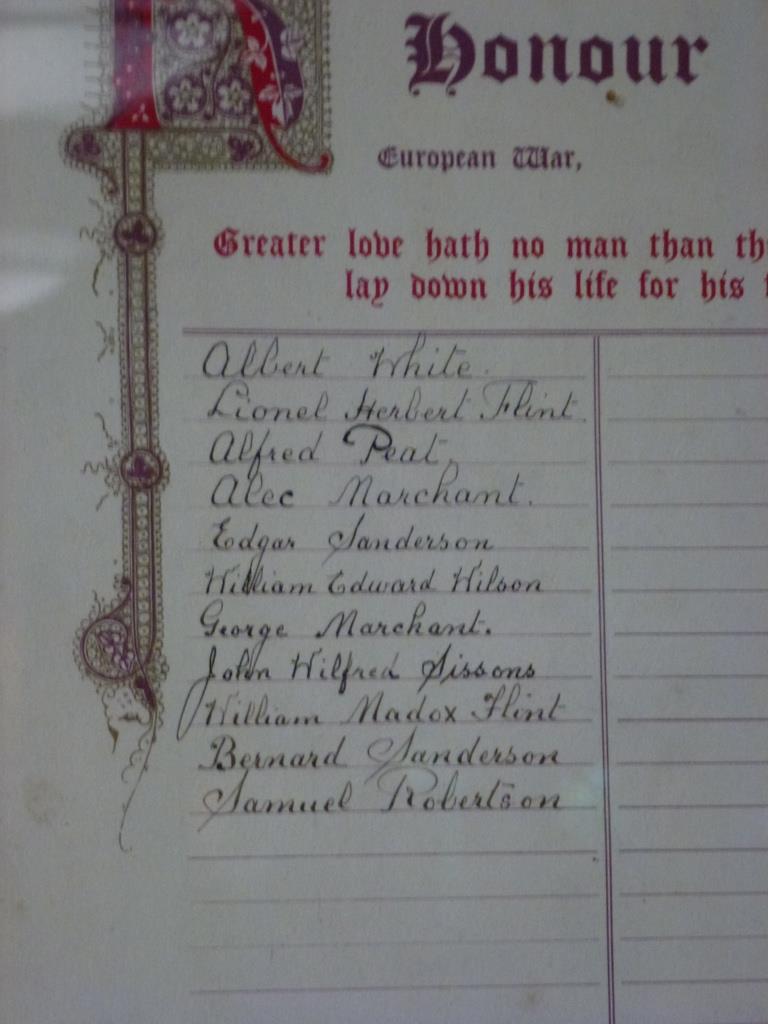 R
Honour
European War,
Greater love hath no man than th
lay down his life for his
Albert White.
Lionel Herbert Flint.
Alfred Peat.
Alec Marchant.
Edgar Sanderson
William Edward Wilson
George Marchant.
John Wilfred Sissons
William Madox Flint
Bernard Sanderson
Samuel Robertson